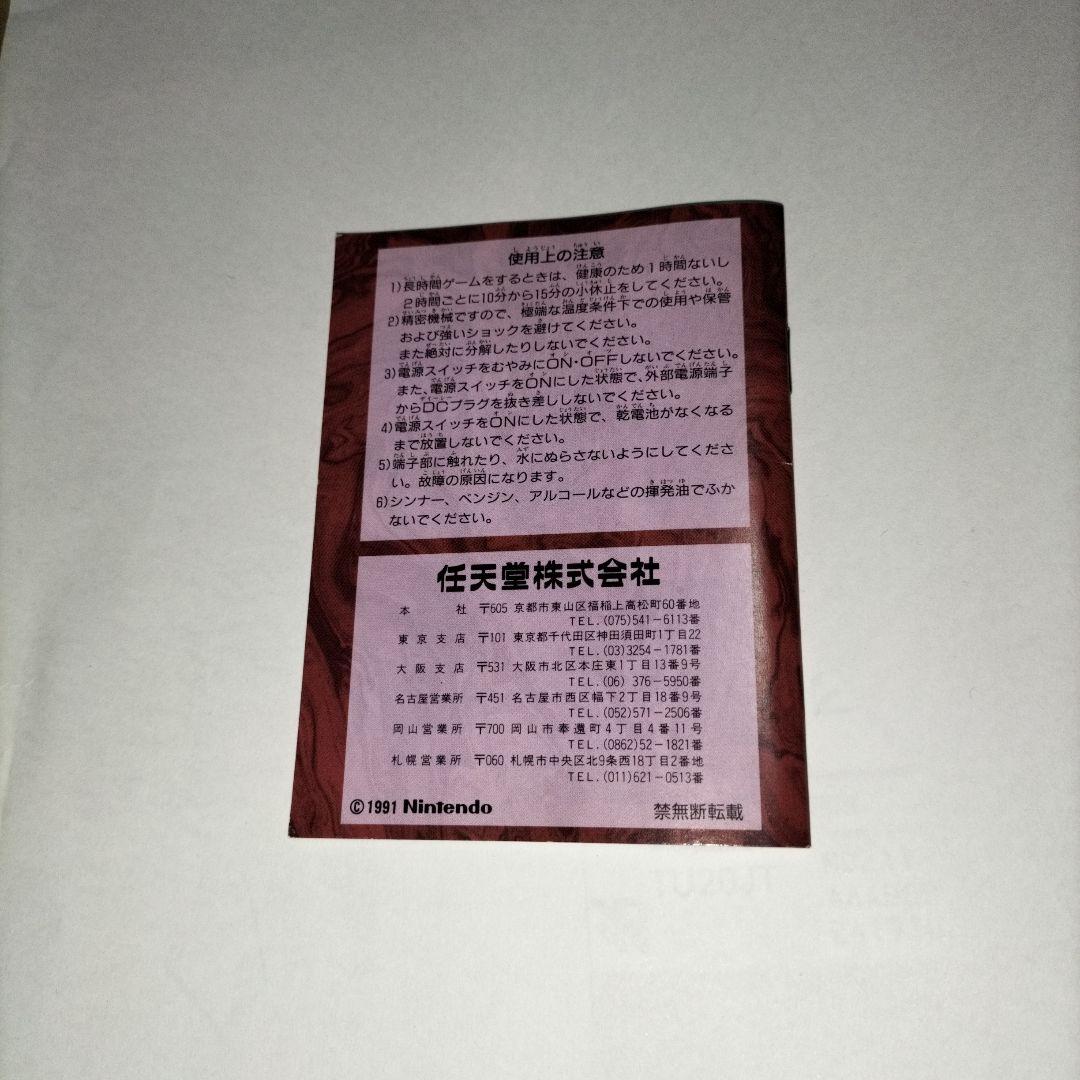 使用上の注意
1)長時間ゲームをするときは、健康のため1時間ないし
2時間ごとに10分から15分の小休止をしてください。
2)精密機械ですので、極端な温度条件下での使用や保管
および強いショックを避けてください。
また絶対に分解したりしないでください。
3)電源スイッチをむやみにON・OFFしないでください。
また、電源スイッチをONにした状態で、外部電源端子
からDCプラグを抜き差ししないでください。
4)電源スイッチをONにした状態で、乾電池がなくなる
まで放置しないでください。
5)端子部に触れたり、水にぬらさないようにしてくださ
い。故障の原因になります。
6)シンナー、ベンジン、アルコールなどの揮発油でふか
ないでください。
任天堂株式会社
本社 〒605 京都市東山区福稲上高松町60番地
TEL.(075)541-6113番
東京支店 〒101 東京都千代田区神田須田町1丁目22
TEL.(03)3254-1781番
大阪支店 〒531 大阪市北区本庄東1丁目13番9号
TEL.(06)376-5950番
名古屋営業所 〒451 名古屋市西区幅下2丁目18番9号
TEL.(052)571-2506番
岡山営業所 〒700 岡山市奉還町4丁目4番11号
TEL.(0862)52-1821番
札幌営業所 〒060 札幌市中央区北9条西18丁目2番地
TEL.(011)621-0513番
©1991 Nintendo 禁無断転載